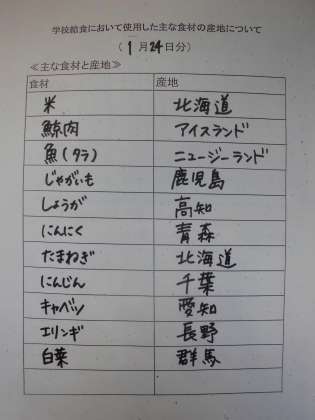 学校給食において使用した主な食材の産地について
(1月24日分)
≪主な食材と産地≫
食材 産地
米 北海道
鯨肉 アイスランド
魚(タラ) ニュージーランド
じゃがいも 鹿児島
しょうが 高知
にんにく 青森
たまねぎ 北海道
にんじん 千葉
キャベツ 愛知
エリンギ 長野
白菜 群馬